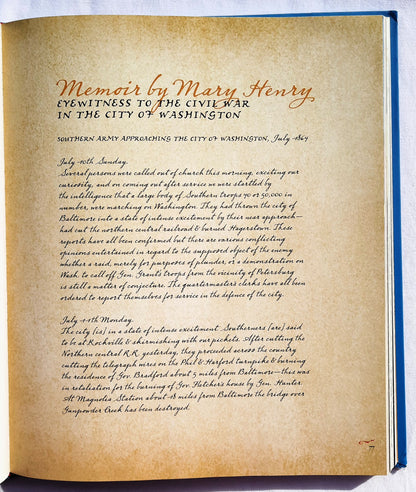 Memoir by Mary Henry
EYEWITNESS TO THE CIVIL WAR
IN THE CITY OF WASHINGTON
SOUTHERN ARMY APPROACHING THE CITY OF WASHINGTON, July 1864
July 10th Sunday.
Several persons were called out of church this morning, exciting our
curiosity, and on coming out after service we were startled by
the intelligence that a large body of Southern troops 40 or 50,000 in
number, were marching on Washington. They had thrown the city of
Baltimore into a state of intense excitement by their near approach—
had cut the northern central railroad & burned Hagerstown. These
reports have all been confirmed but there are various conflicting
opinions entertained in regard to the supposed object of the enemy
whether a raid, merely for purposes of plunder, or a demonstration on
Wash. to call off Gen. Grant's troops from the vicinity of Petersburg
is still a matter of conjecture. The quartermasters clerks have all been
ordered to report themselves for service in the defence of the city.
July 11th Monday.
The city [is] in a state of intense excitement. Southerners [are] said
to be at Rockville & skirmishing with our pickets. After cutting the
Northern central R.R. yesterday, they proceeded across the country
cutting the telegraph wires on the Phil & Harford turnpike & burning
the residence of Gov. Bradford about 5 miles from Baltimore—this was
in retaliation for the burning of Gov. Fletcher's house by Gen. Hunter.
At Magnolia Station about 18 miles from Baltimore the bridge over
Gunpowder Creek has been destroyed.
7